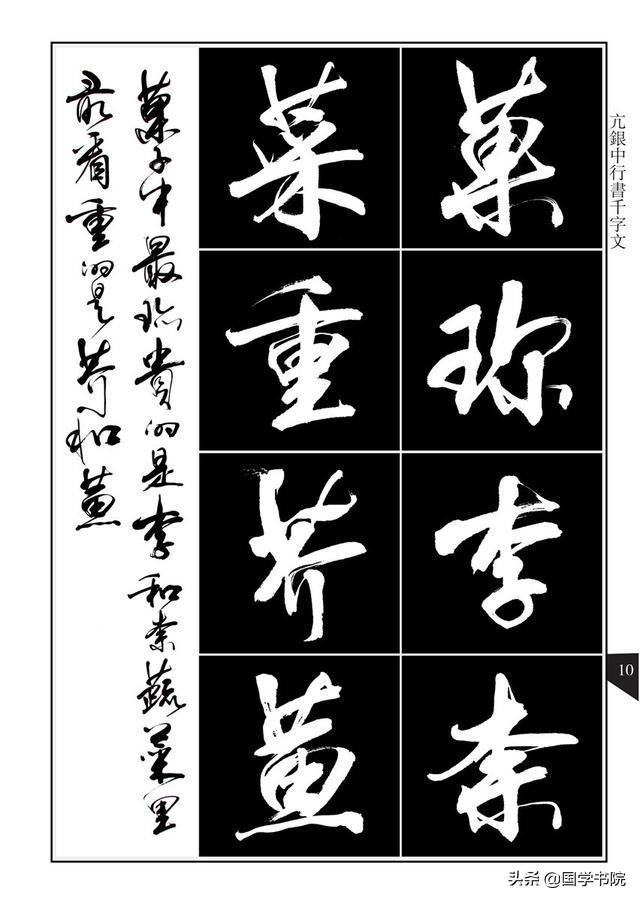 亢銀中行書千字文
菓珍李柰
菜重芥薑
菓子中最珍貴的是李和柰蔬菜里
最看重的是芥和薑
10
头条 @国学书院